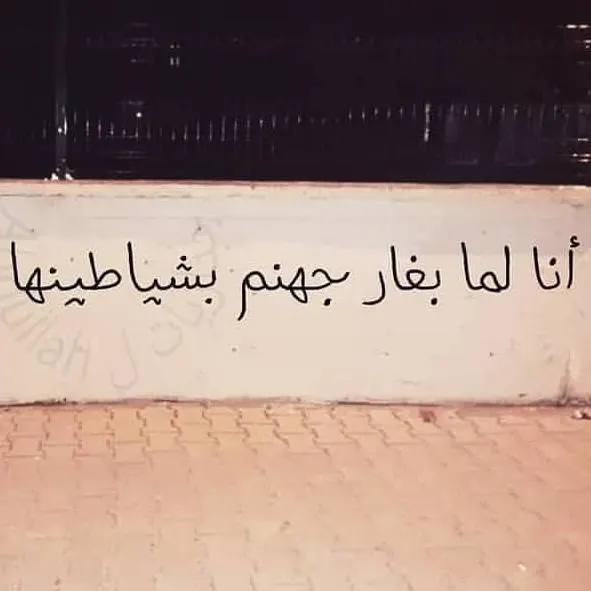 أنا لما بغار جهنم بشياطينها